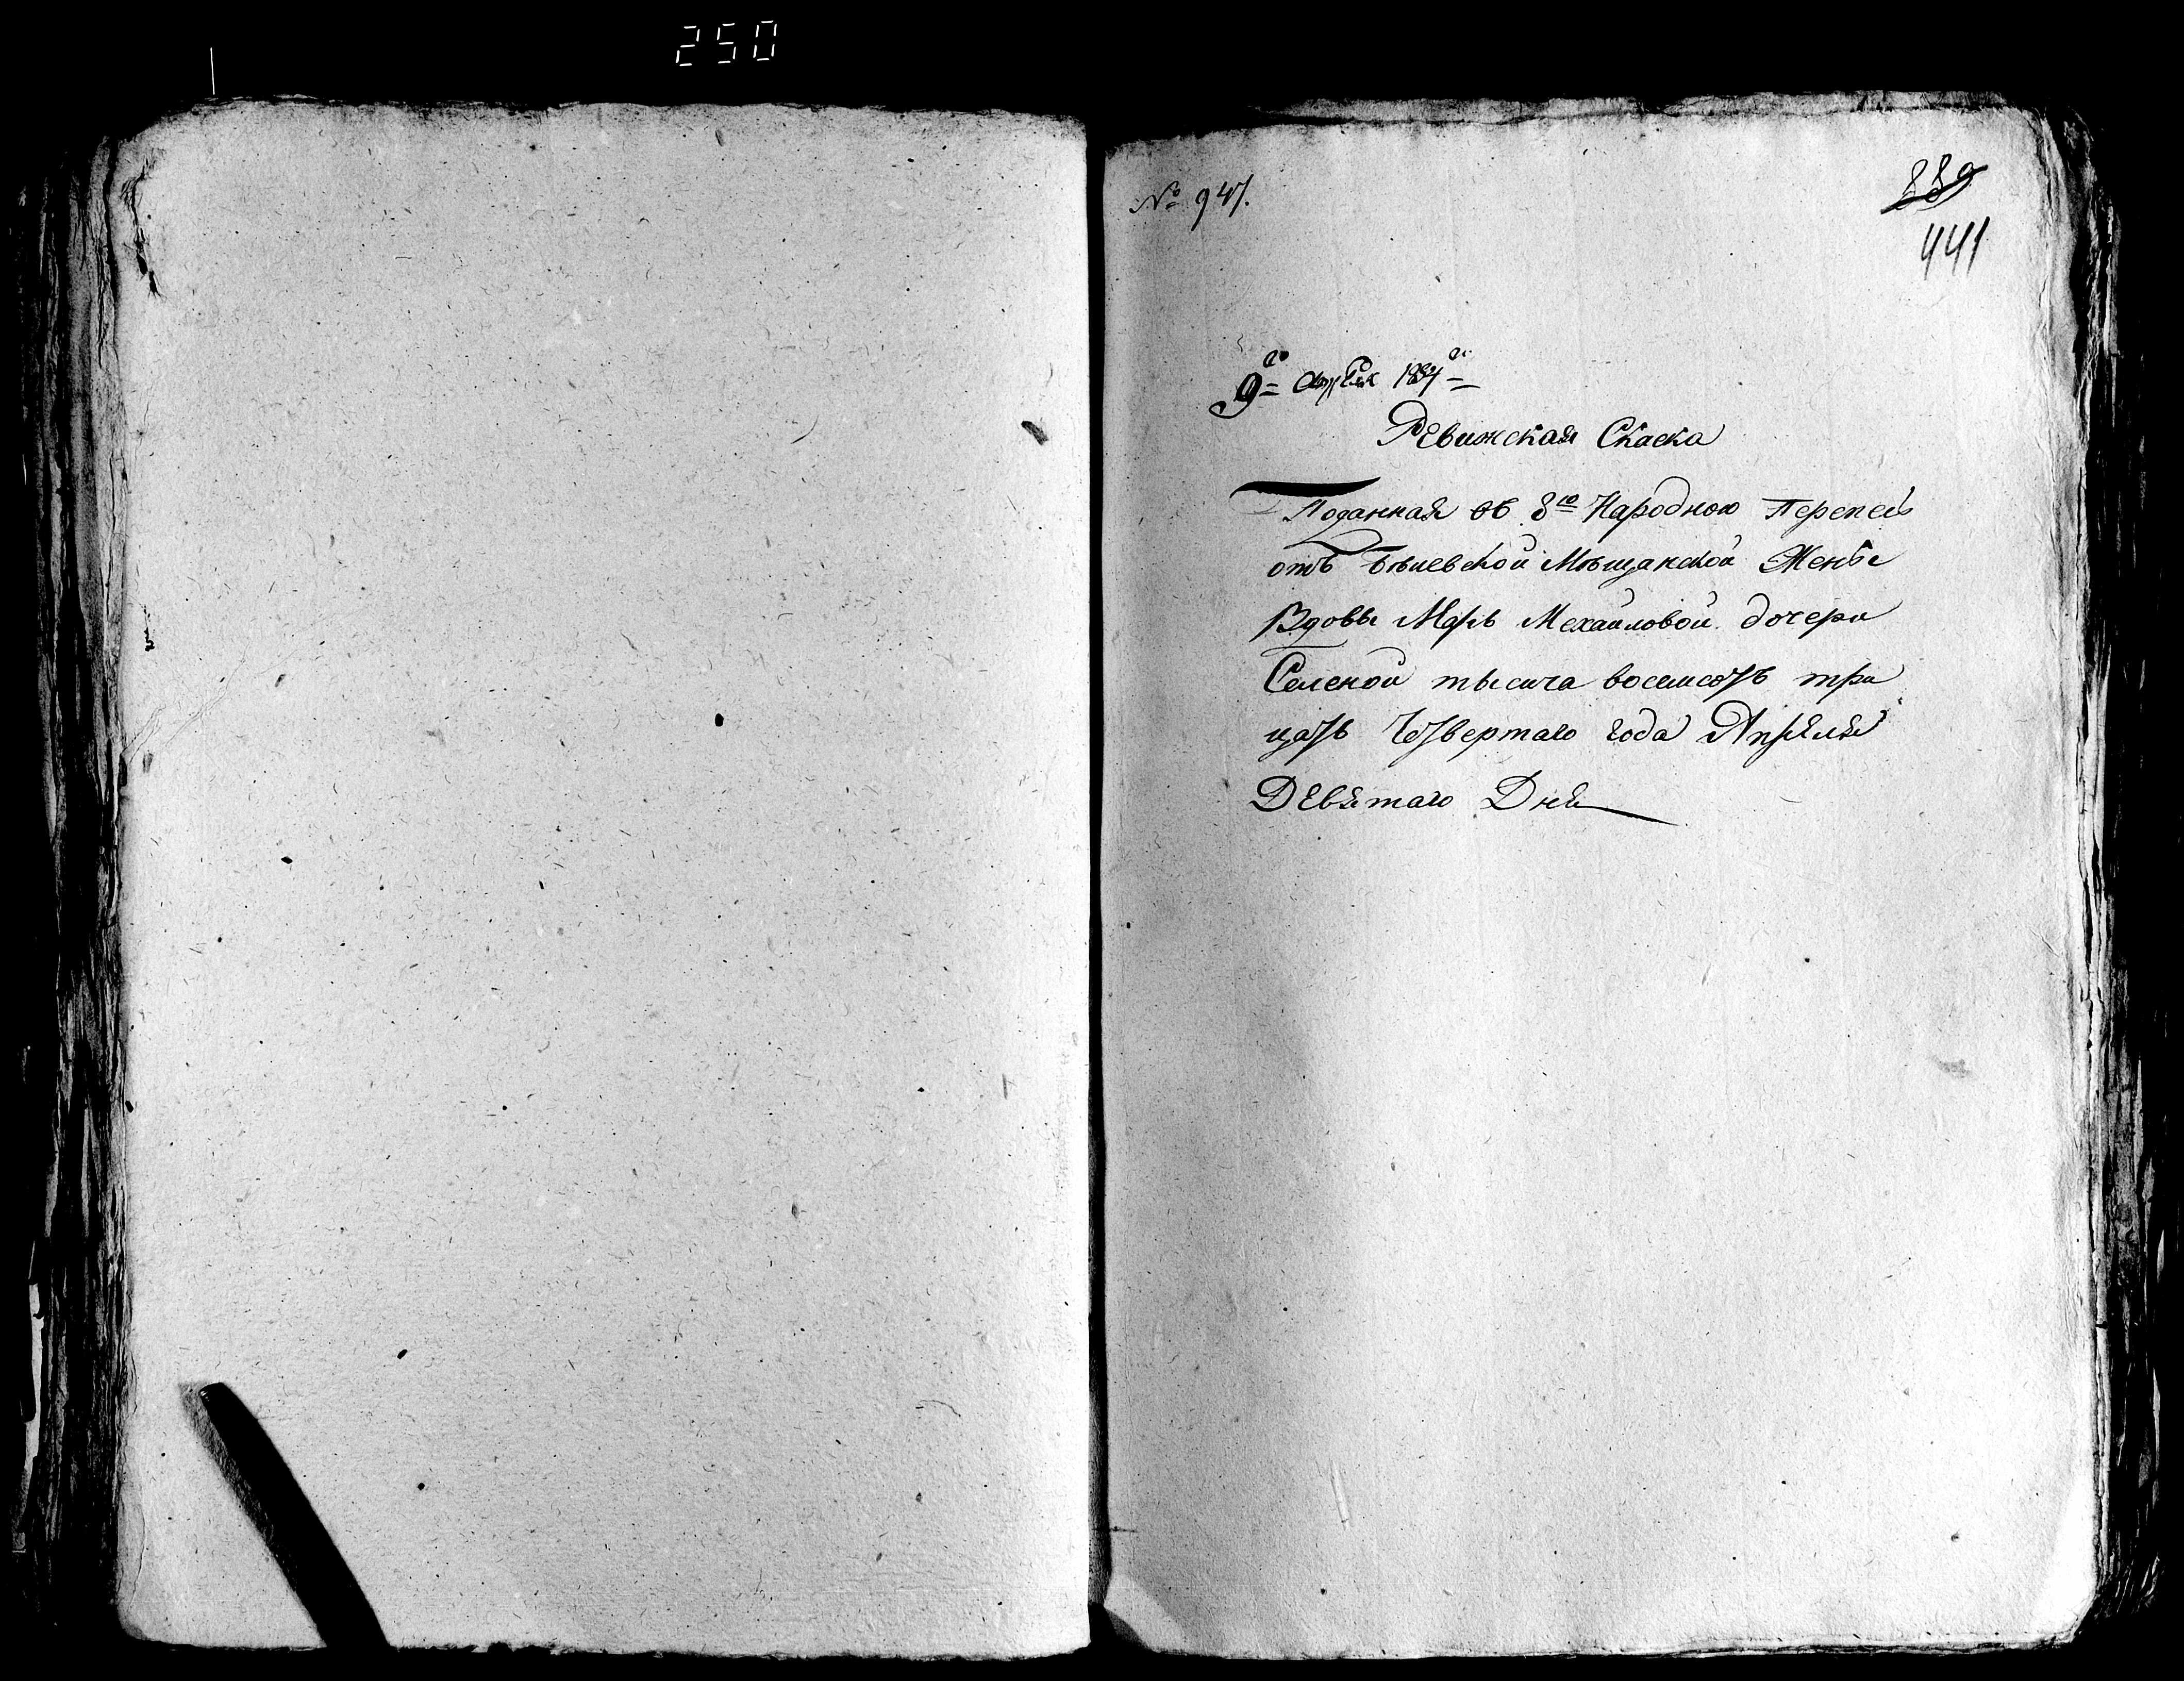 250
№ 947.
889
441
9го Апреля 1834го
Ревижская Скаска
Поданная об 8ю Народною Перепесь
отъ Бѣлевской Мѣщанской Жены
Вдовы Марь Мехайловой дочери
тысеча восемсотъ три
цать Четвертаго года Апреля
Девятаго Дня